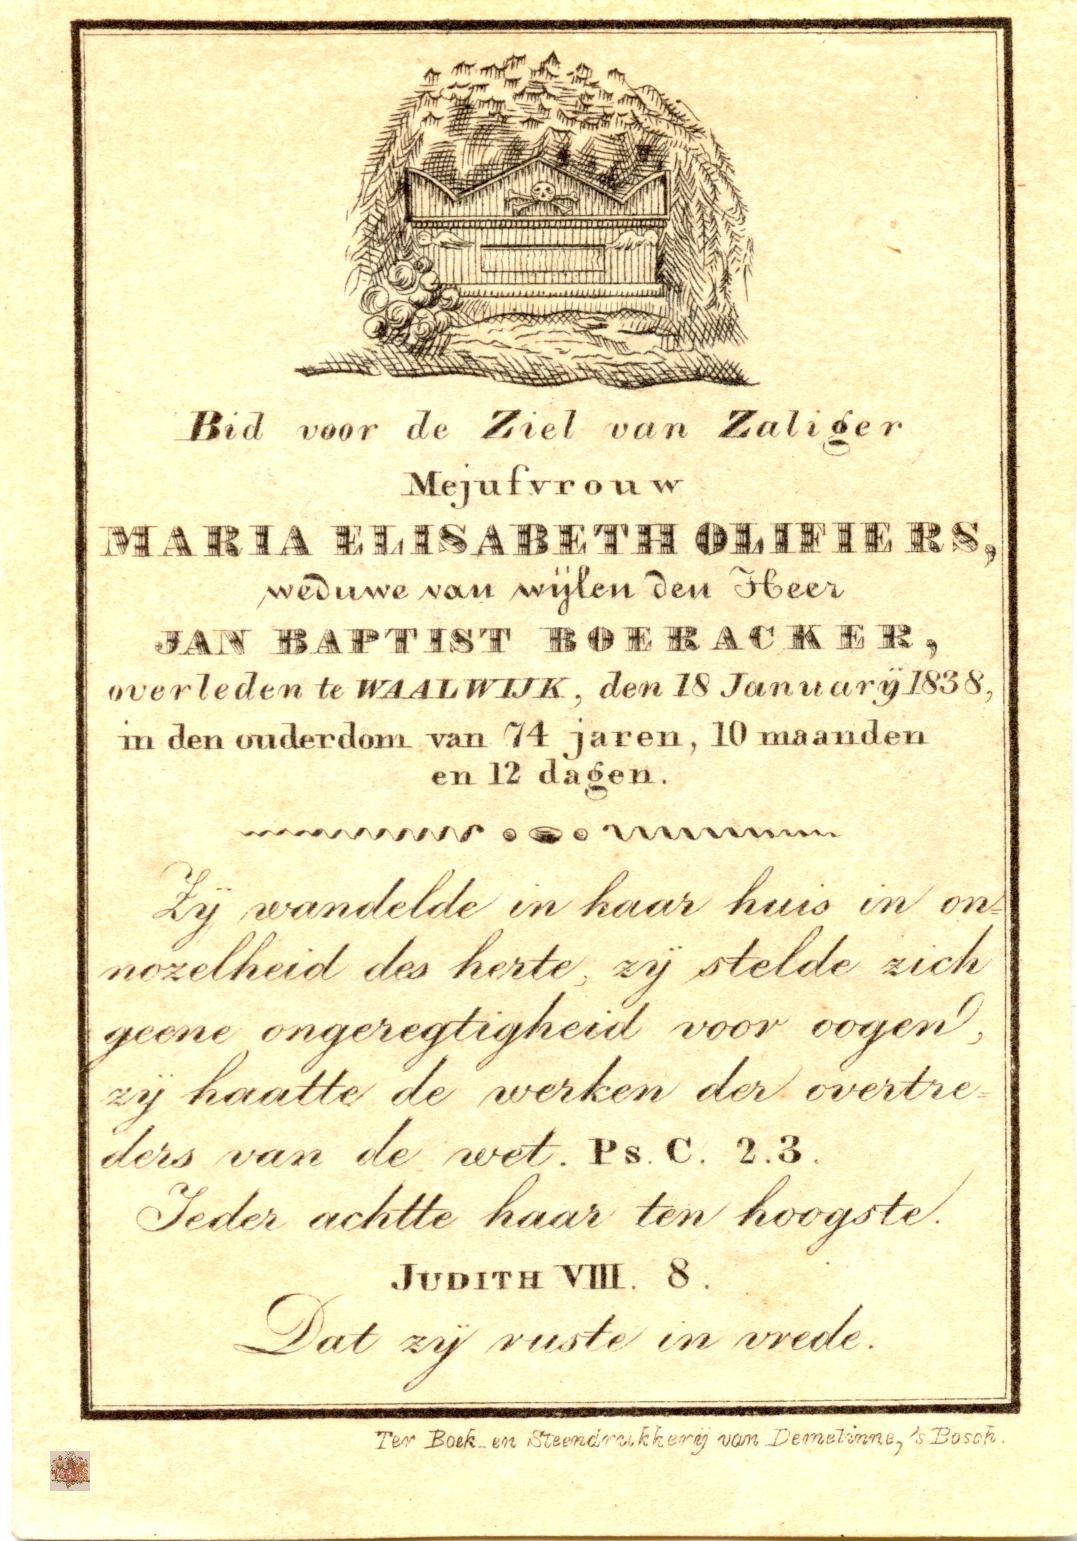 Bid voor de Ziel van Zaliger
Mejufvrouw
MARIA ELISABETH OLIFIERS,
weduwe van wijlen den Heer
JAN BAPTIST BOERACKER,
overleden te WAALWIJK, den 18 Januarij 1838,
in den ouderdom van 74 jaren, 10 maanden
en 12 dagen.
Zij wandelde in haar huis in on-
nozelheid des herte, zij stelde zich
geene ongeregtigheid voor oogen,
zij haatte de werken der overtre-
ders van de wet. Ps. C. 2.3.
Ieder achtte haar ten hoogste.
JUDITH VIII. 8.
Dat zij ruste in vrede.
Ter Boek- en Steendrukkerij van Demelinne, 's Bosch.